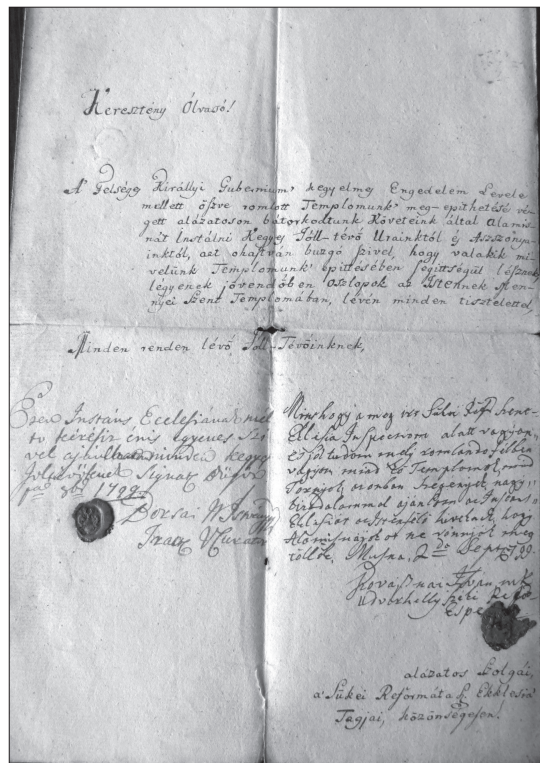 Keresztény Olvasó!
A Felséges Királlyi Gubernium kegyelmes Engedelem Levele
mellett öszve romlott Templomunk meg-építhetése vé-
gett alázatoson bátorkodtunk Követeink által Alamis-
nát Instálni Kegyes Jóll-tévő Urainktól és Aszszonya-
inktól, azt ohajtván buzgó szivel, hogy valakik mi-
velünk Templomunk építtésében segittségül lésznek
légyenek jövendőben oszlopok az Istennek Men-
nyei Szent Templomában, lévén minden tisztelettel,
Minden renden lévő Jóll-Tévőinknek,
Ezen Instáns Ecclesiának
kérésit én is egyenes szi-
vel minden kegyes
1799
Borsai
Minthogy a meg irt
Inspectiom alatt vagyon
tudom melj romlando félben
vagyon mind Templomok, mind
Tornyok, azonban Szegények, nagy
bizodalommal ajánlom az Instans
hiveinek, hogy
Alamisnájokot ne vonnyák meg
töllök. Musna, 2da Septr 99.
István mk
Udvarhelly Széki Refor
Espe
alázatos Szolgái,
a Sükei Reformáta S. Ekklésia
Tagjai, közönségesen!